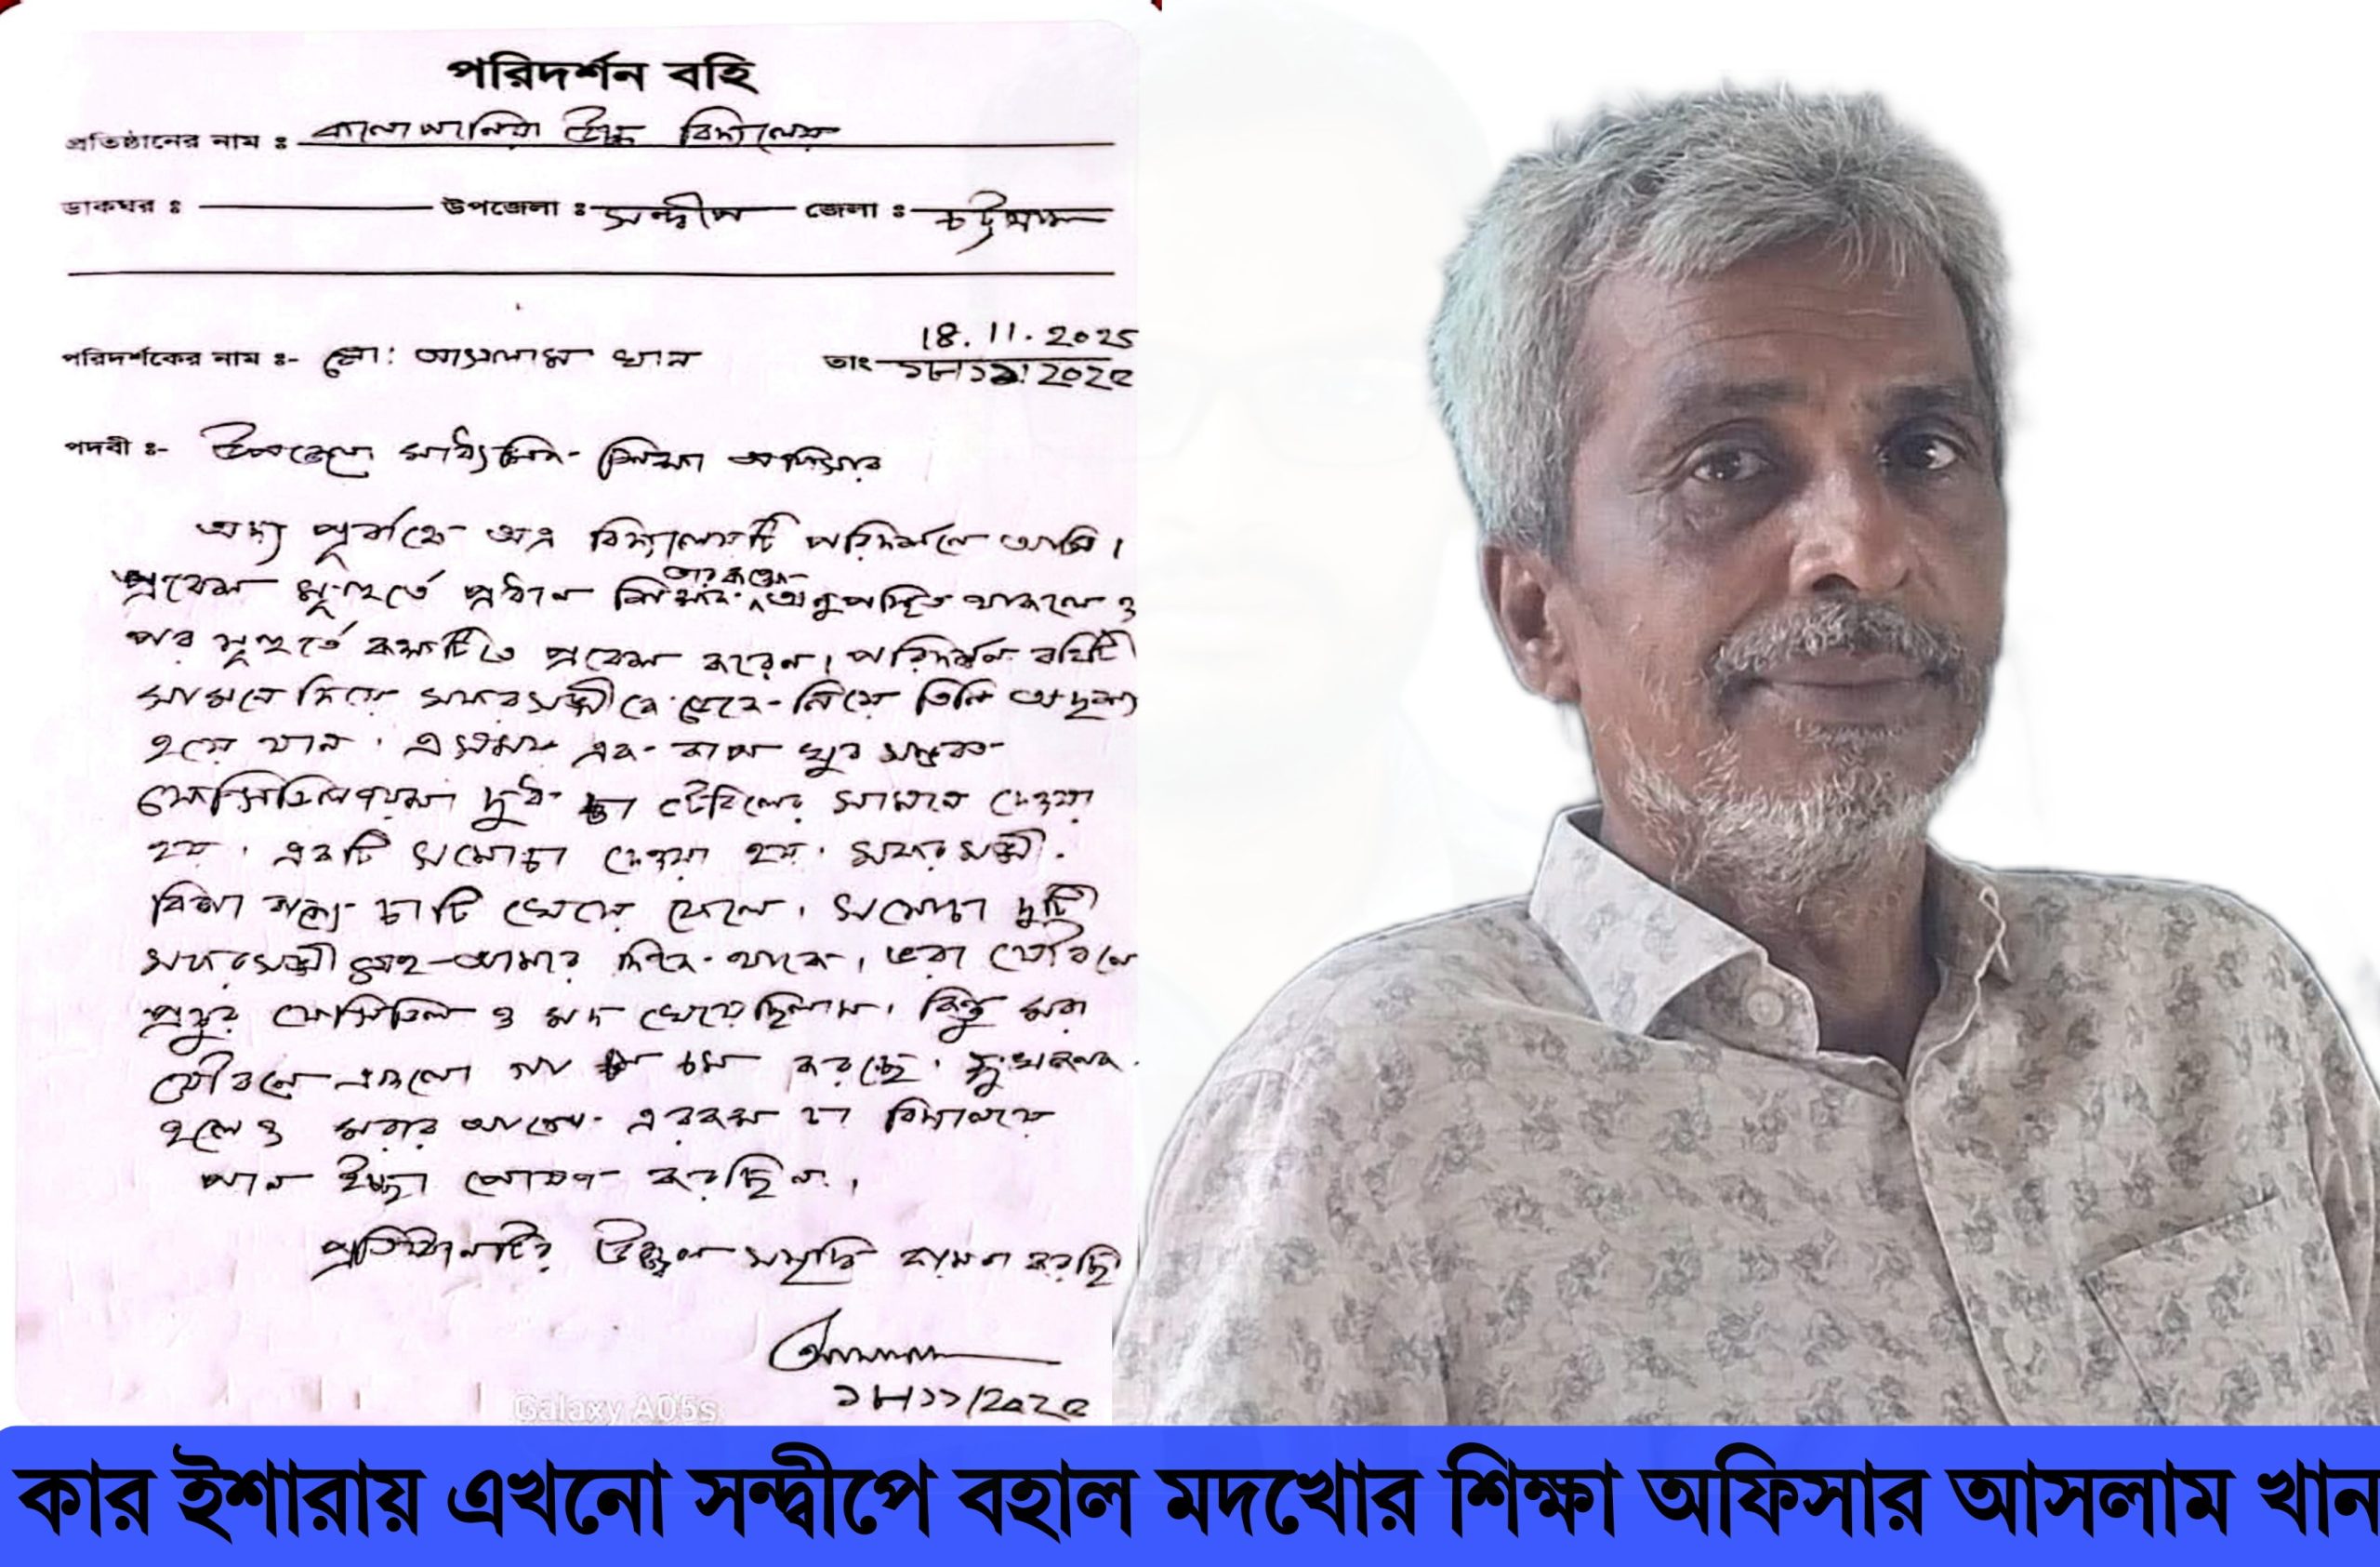 পরিদর্শন বহি
প্রতিষ্ঠানের নাম ঃ কালাপানিয়া উচ্চ বিদ্যালয়
ডাকঘর ঃ উপজেলা ঃ সন্দ্বীপ জেলা ঃ চট্টগ্রাম
18.11.2025
পরিদর্শকের নাম ঃ- মো: আসলাম খান তাং ১৮/১১/২০২৫
পদবী ঃ- উপজেলা মাধ্যমিক শিক্ষা অফিসার
অদ্য পূর্বাহ্নে অত্র বিদ্যালয়টি পরিদর্শনে আসি।
প্রবেশ মুহুর্তে প্রধান শিক্ষক তার কক্ষে অনুপস্থিত থাকলেও
পর মূহুর্তে কক্ষটিতে প্রবেশ করেন। পরিদর্শন বহিটি
সামনে দিয়ে সফরসঙ্গীকে ডেকে নিয়ে তিনি অদৃশ্য
হয়ে যান। এসময় এক কাপ খুব
ফেন্সিডিল দুধ চা টেবিলের সামনে দেওয়া
হয়। একটি সমোচা দেওয়া হয়। সফরসঙ্গী
বিনা বাক্যে চাটি খেয়ে ফেলে। সমোচা দুটি
সফরসঙ্গী সহ আমার দিকে থাকে। ভরা যৌবনে
প্রচুর ফেন্সিডিল ও মদ খেয়েছিলাম। কিন্তু মরা
যৌবনে এগুলো গা করছে। দু:খজনক
হলেও মরার আগে এরকম চা বিদ্যালয়ে
পান ইচ্ছা পোষণ করছিনা।
প্রতিষ্ঠানটির উজ্জ্বল সমৃদ্ধি কামনা করছি
১৮/১১/২০২৫
Galaxy A05s
কার ইশারায় এখনো সন্দ্বীপে বহাল মদখোর শিক্ষা অফিসার আসলাম খান